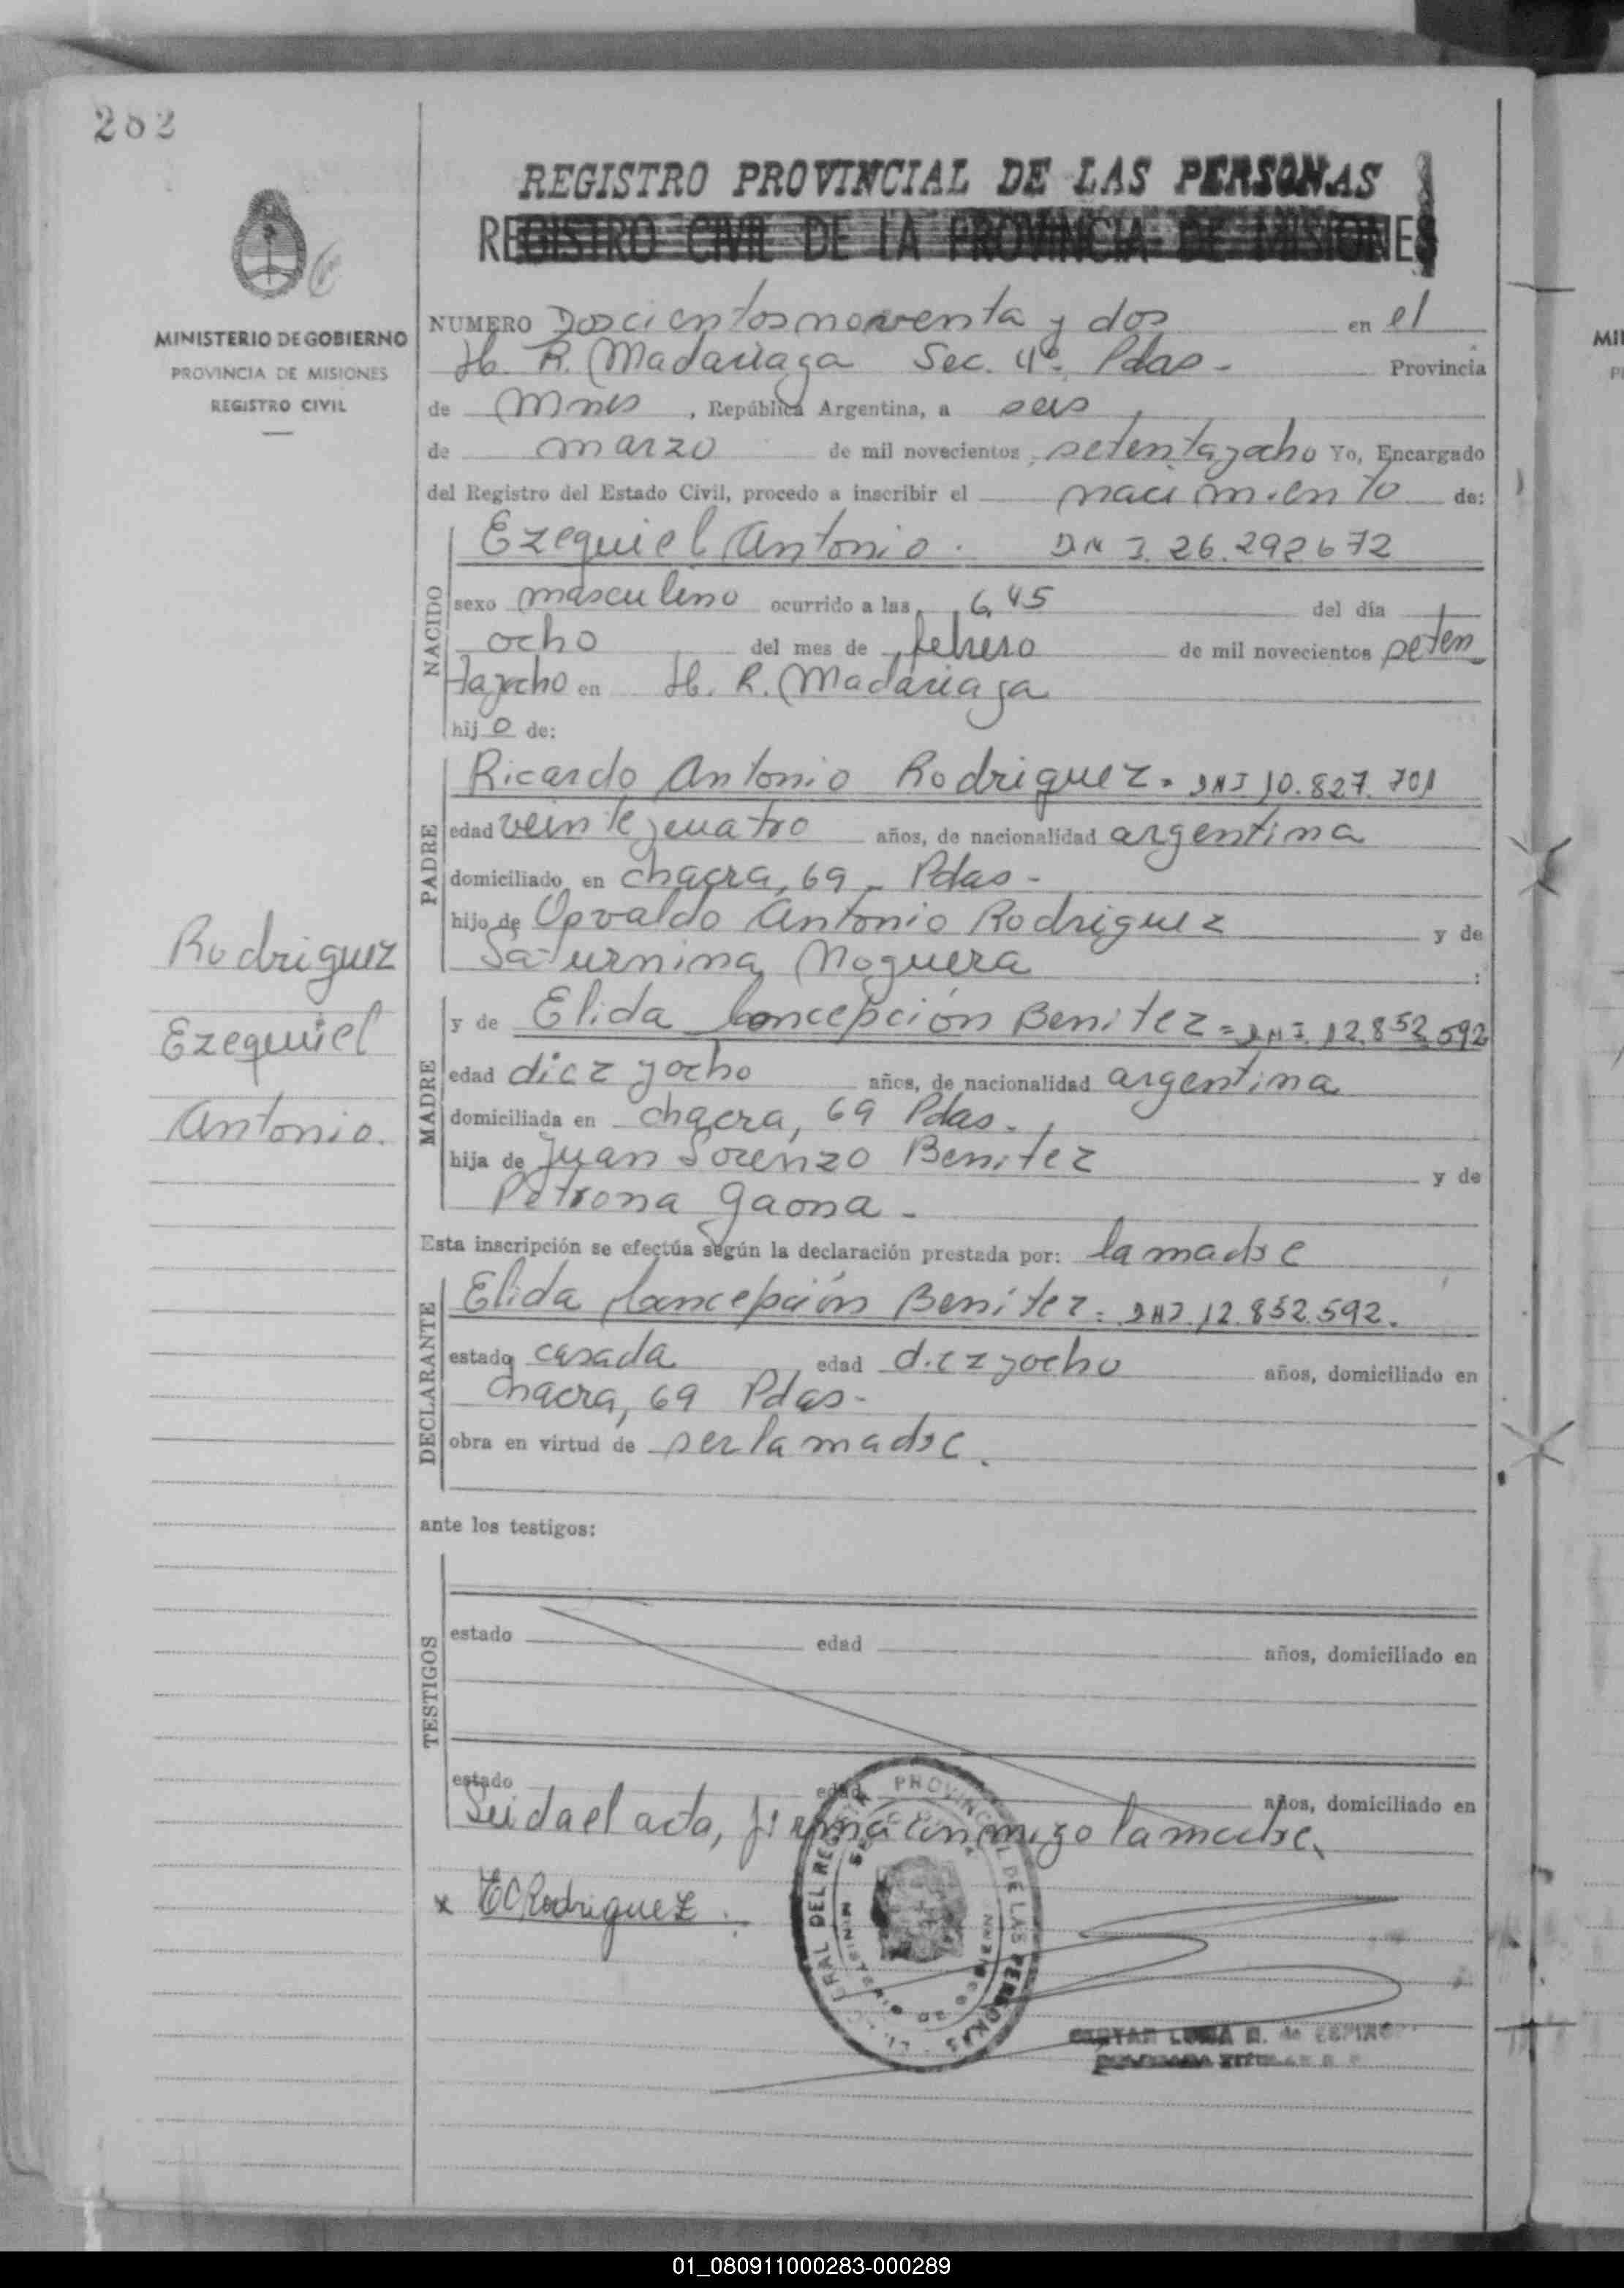 282
REGISTRO PROVINCIAL DE LAS PERSONAS
REGISTRO CIVIL DE LA PROVINCIA DE MISIONES
MINISTERIO DE GOBIERNO
PROVINCIA DE MISIONES
REGISTRO CIVIL
NUMERO Doscientos nowenta y dos en el
H. R. Madariaga Sec. 4º. Pdas - Provincia
de Mnes, República Argentina, a seis
de marzo de mil novecientos setentayocho Yo, Encargado
del Registro del Estado Civil, procedo a inscribir el nacimiento de:
NACIDO
Ezequiel Antonio. DNI. 26.292672
sexo masculino ocurrido a las 6,45 del día
ocho del mes de febrero de mil novecientos seten
tayocho en H. R. Madariaga
hij o de:
PADRE
Ricardo Antonio Rodriguez = DNI 10.827.701
edad veinteycuatro años, de nacionalidad argentina
domiciliado en chacra, 69 - Pdas -
hijo de Osvaldo Antonio Rodriguez y de
Saturnina Noguera :
Rodriguez
Ezequiel
Antonio.
MADRE
y de Elida Concepción Benitez = DNI. 12.852.592
edad diez y ocho años, de nacionalidad argentina
domiciliada en chacra, 69 Pdas.
hija de Juan Lorenzo Benitez y de
Petrona Gaona -
Esta inscripción se efectúa según la declaración prestada por: la madre
DECLARANTE
Elida Concepción Benitez = DNI. 12.852.592.
estado casada edad diezyocho años, domiciliado en
Chacra, 69 Pdas -
obra en virtud de ser la madre.
ante los testigos:
TESTIGOS
estado edad años, domiciliado en
estado edad años, domiciliado en
Leida el acta, firma conmigo la madre.
x EC Rodriguez.
DEL REGISTRO PROVINCIAL DE LAS PERSONAS
LUISA de
01_080911000283-000289